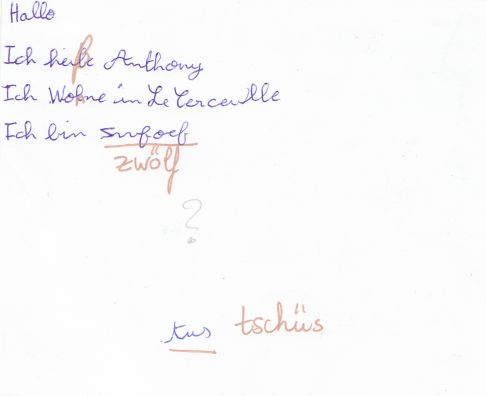 Hallo
Ich heiße Anthony
Ich Wohne in
Ich bin
zwölf
?
tus tschüs